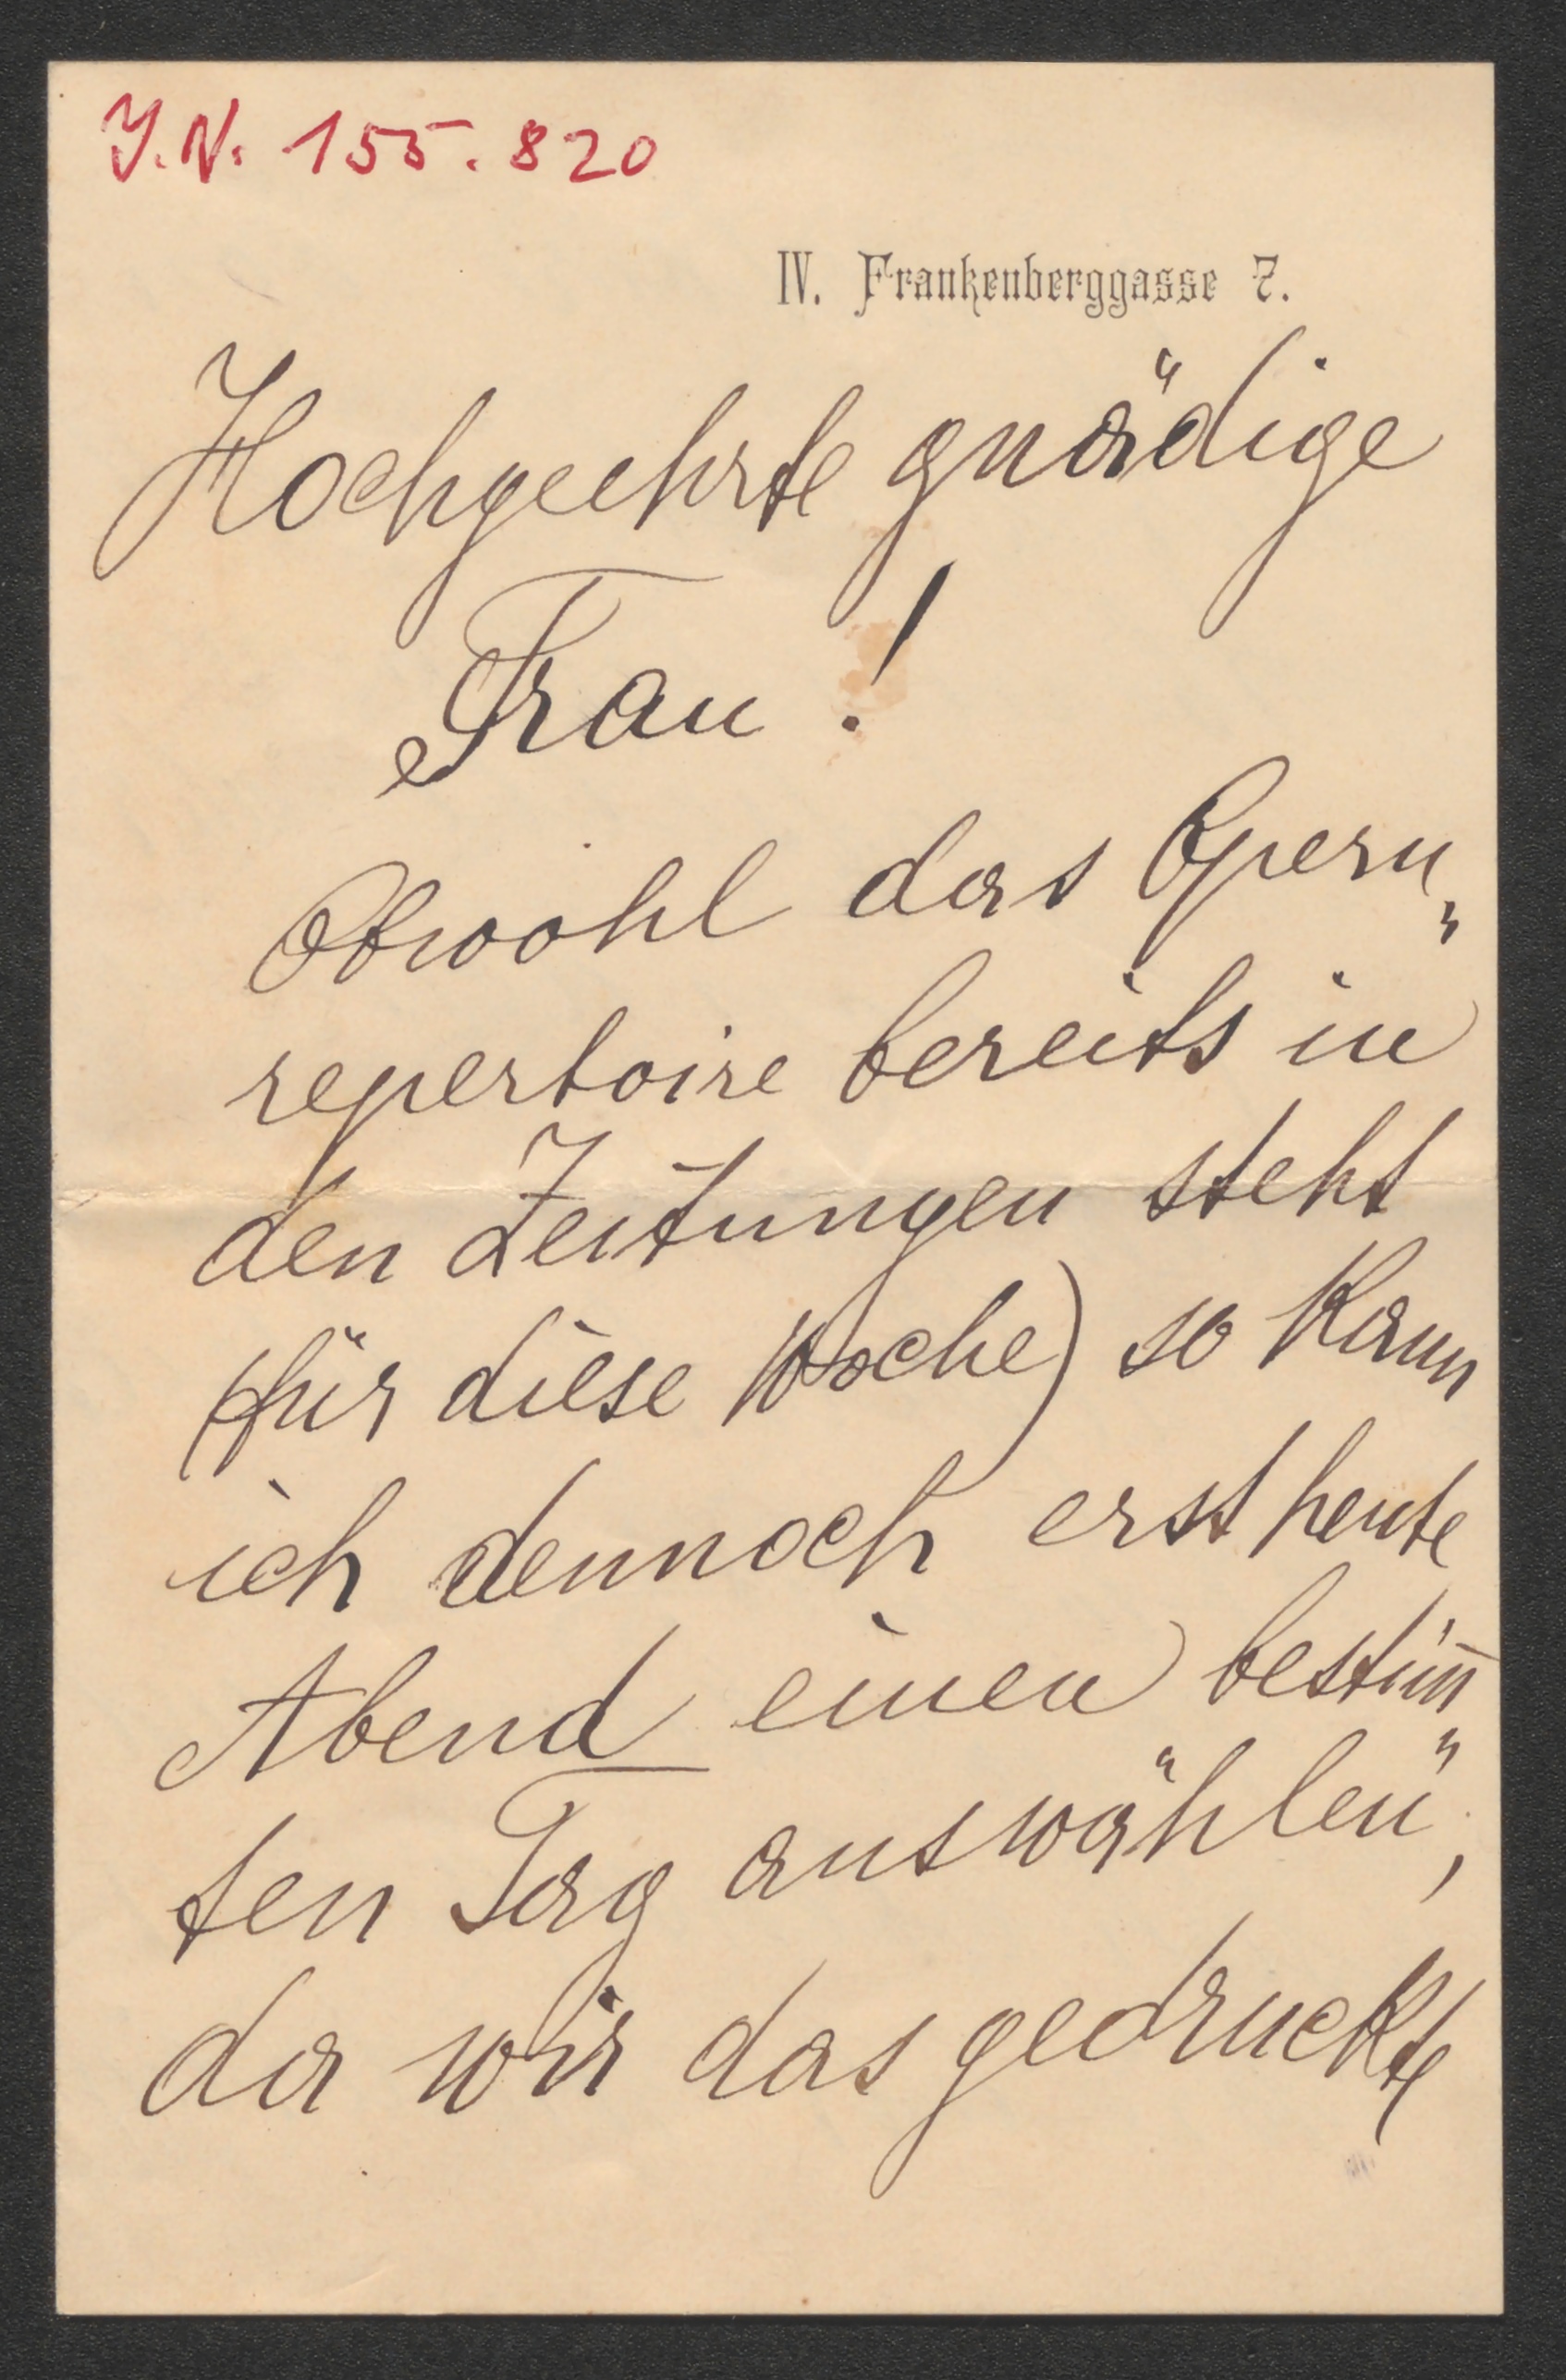 J.N. 155.820
IV. Frankenberggasse 7.
Hochgeehrte gnädige
Frau!
Obwohl das Opern„
repertoire bereits in
den Zeitungen steht
(für diese Woche) so kann
ich dennoch erst heute
Abend einen bestim̅„
ten Tag auswählen,
da wir das gedruckte